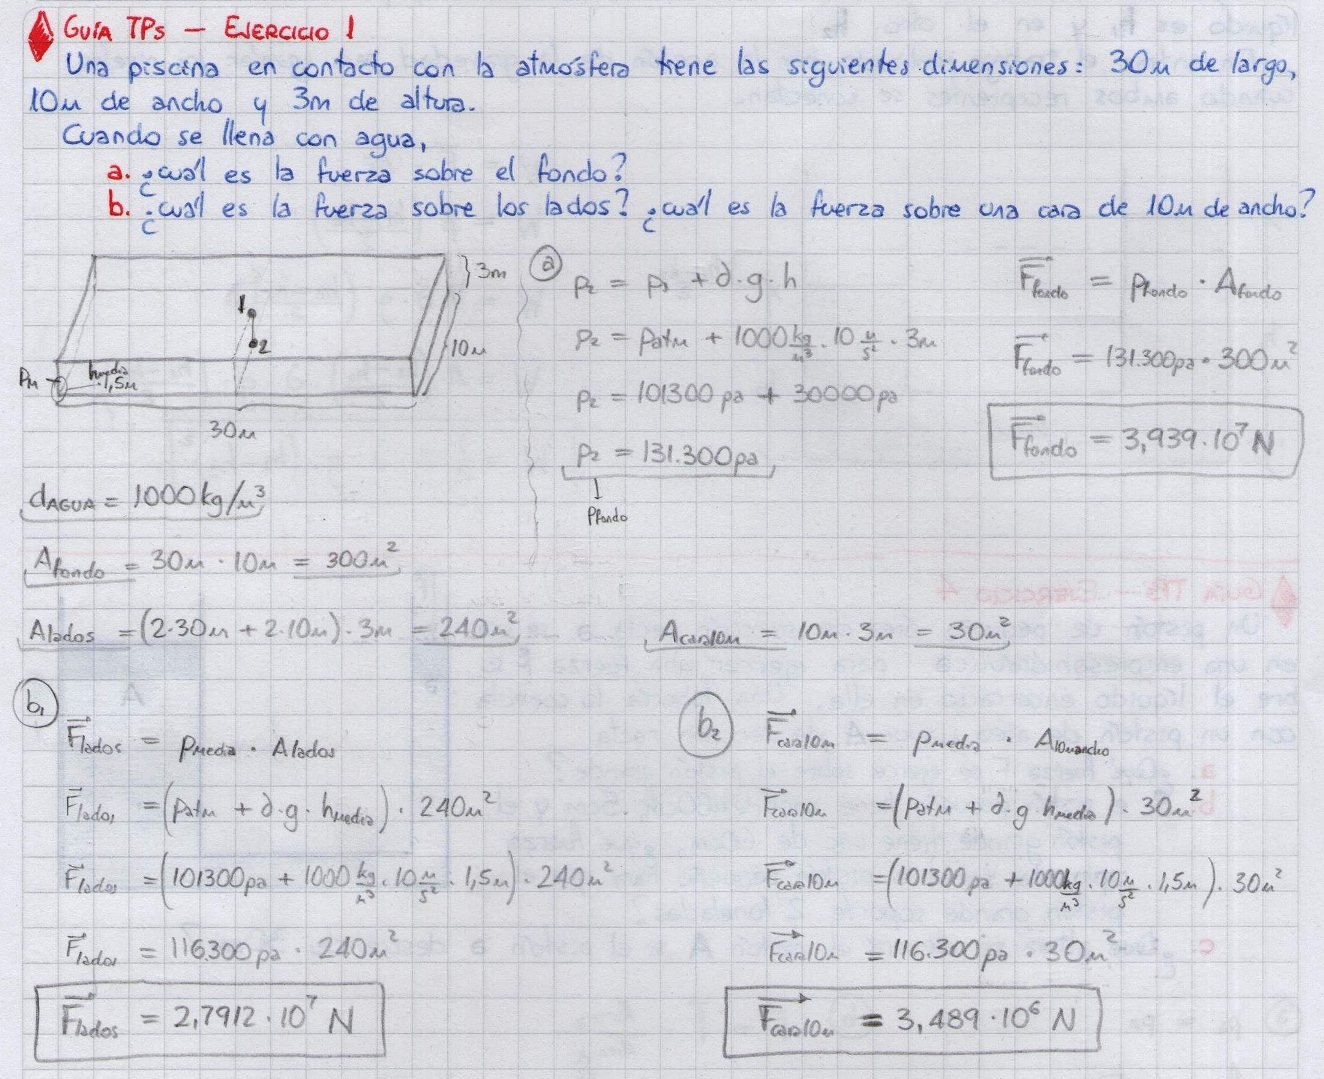 GUÍA TPs — EJERCICIO 1
Una piscina en contacto con la atmósfera tiene las siguientes dimensiones: 30m de largo,
10m de ancho y 3m de altura.
Cuando se llena con agua,
a. ¿cuál es la fuerza sobre el fondo?
b. ¿cuál es la fuerza sobre los lados? ¿cuál es la fuerza sobre una cara de 10m de ancho?
3m
1
2
10m
PM
hmedia
1,5m
30m
dAGUA = 1000 kg/m³
Afondo = 30m · 10m = 300m²
Alados = (2·30m + 2·10m) · 3m = 240m²
Acara10m = 10m · 3m = 30m²
a
p2 = p1 + d·g·h
p2 = patm + 1000 kg/m³ · 10 m/s² · 3m
p2 = 101300 pa + 30000 pa
p2 = 131.300 pa
Pfondo
Ffondo = pfondo · Afondo
Ffondo = 131.300pa · 300m²
Ffondo = 3,939·10⁷ N
b1
Flados = pmedia · Alados
Flados = (patm + d·g·hmedia) · 240m²
Flados = (101300pa + 1000 kg/m³ · 10 m/s² · 1,5m) · 240m²
Flados = 116300 pa · 240m²
Flados = 2,7912·10⁷ N
b2
Fcara10m = pmedia · A10mancho
Fcara10m = (patm + d·g·hmedia) · 30m²
Fcara10m = (101300 pa + 1000 kg/m³ · 10 m/s² · 1,5m) · 30m²
Fcara10m = 116.300 pa · 30m²
Fcara10m = 3,489·10⁶ N